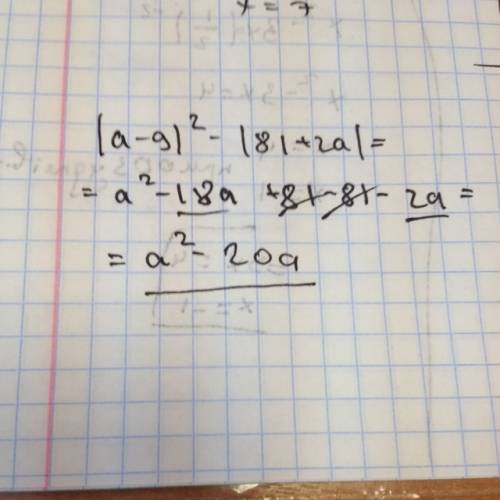 x = 7
(a-9)² - (81+2a) =
= a² - 18a +81 - 81 - 2a =
= a² - 20a